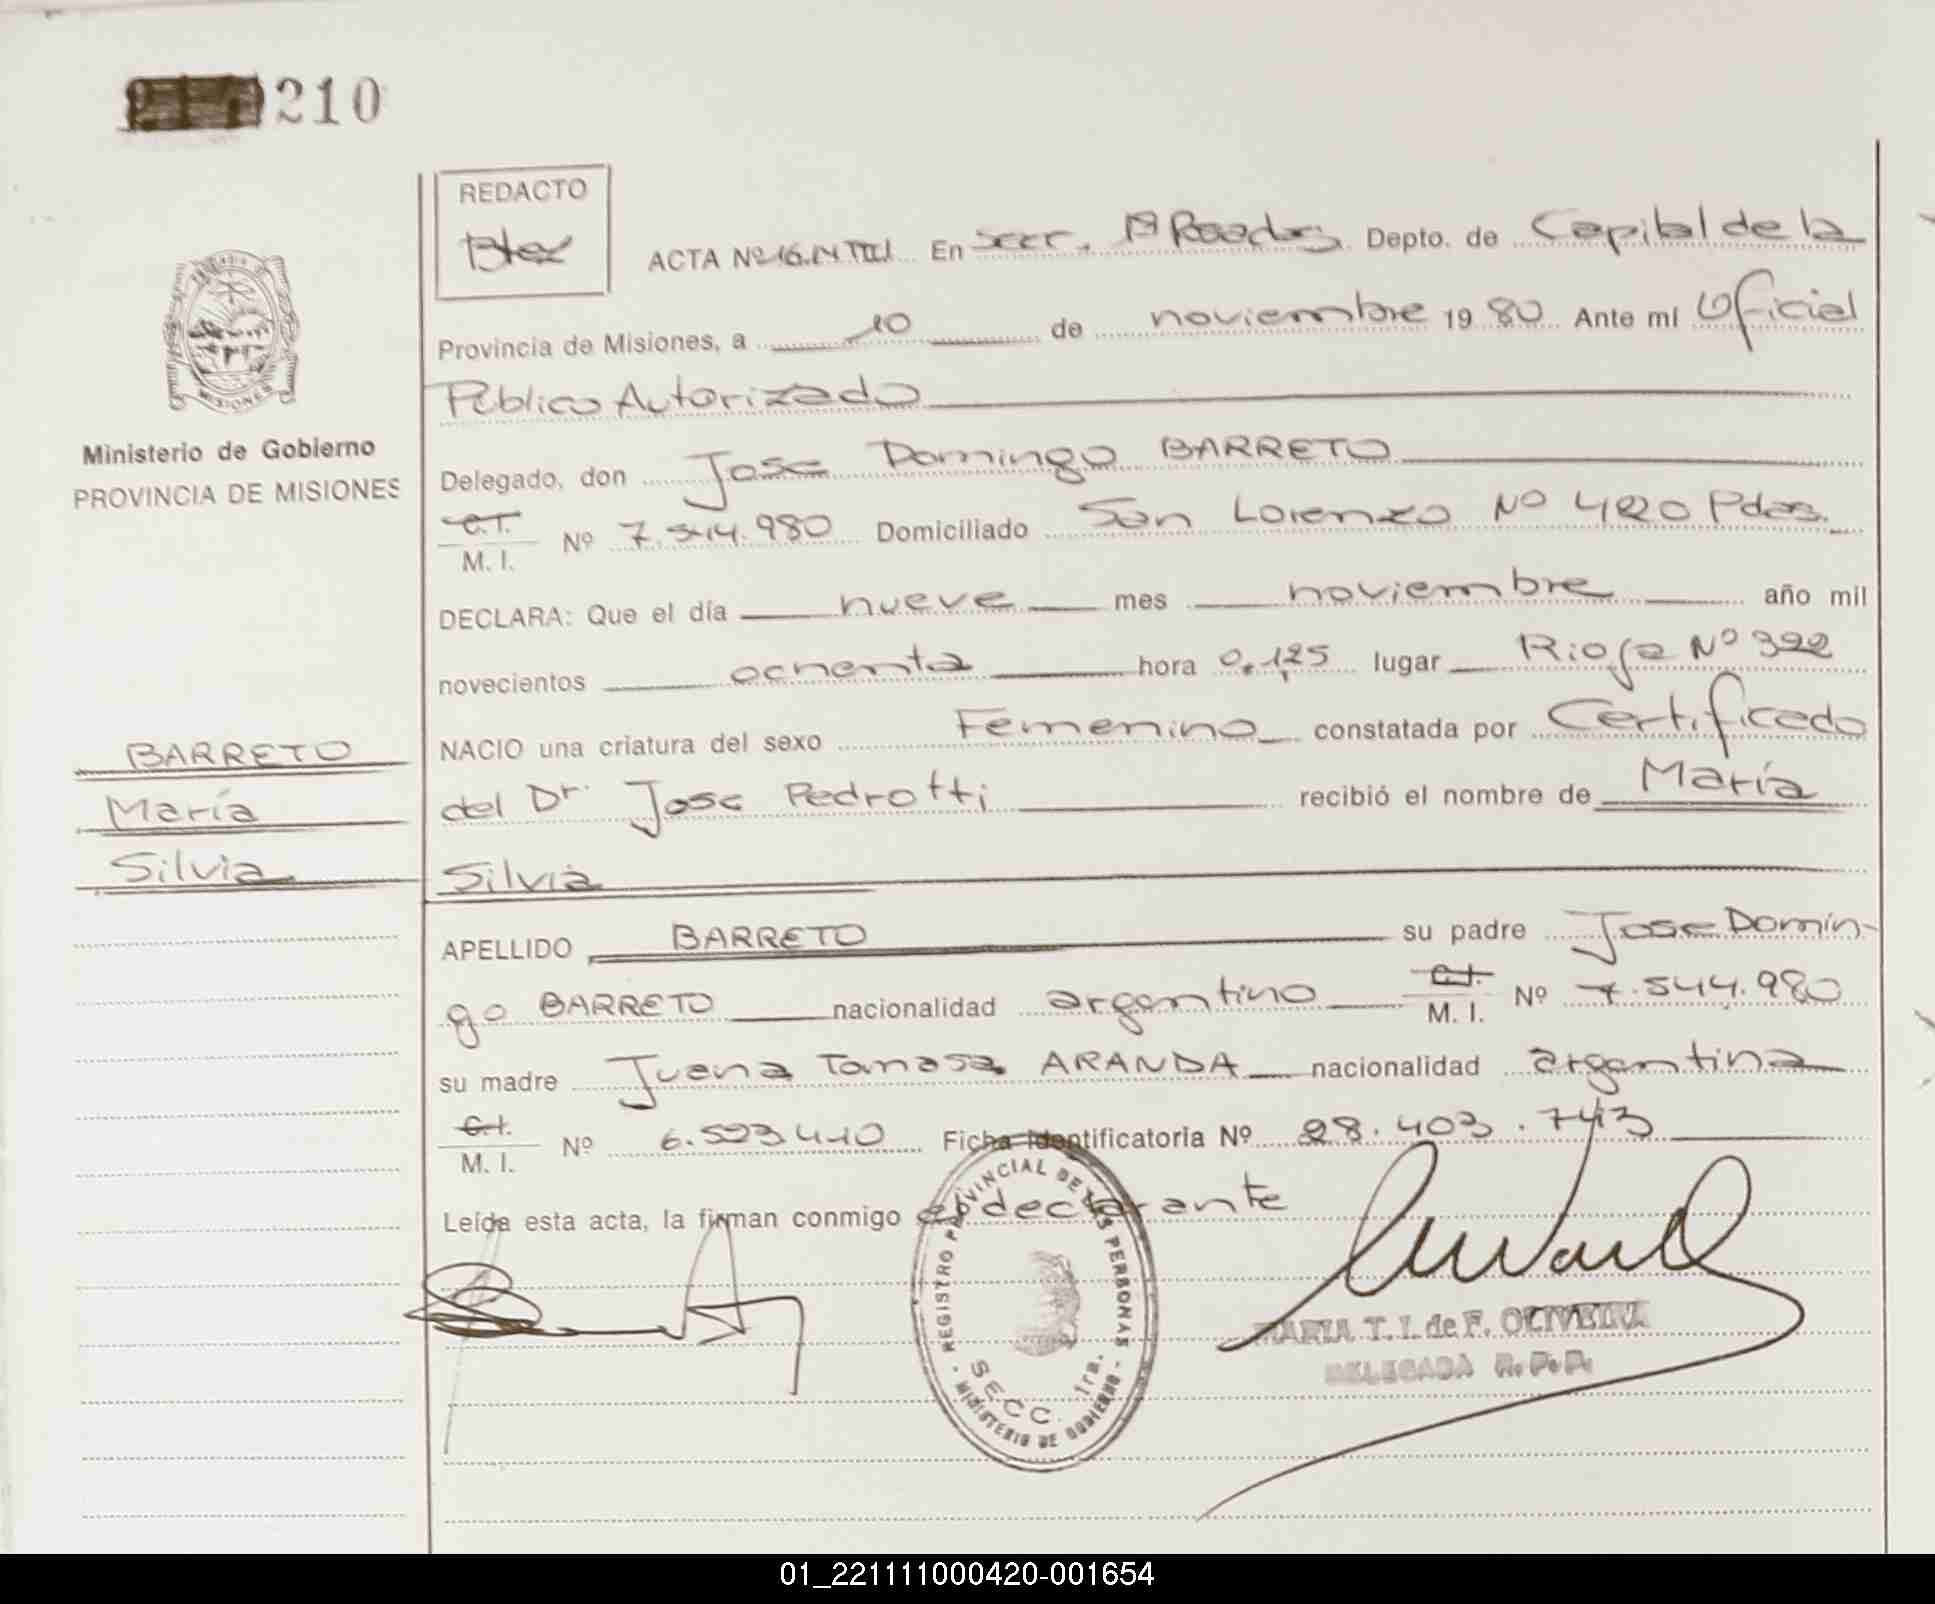 210
REDACTO
ACTA Nº 16.M TIII En Secc. 1ª Posadas Depto. de Capital de la
Provincia de Misiones, a 10 de noviembre 1980 Ante mí Oficial
Público Autorizado
Ministerio de Gobierno
PROVINCIA DE MISIONES
Delegado, don Jose Domingo BARRETO
C.I.
M. I. Nº 7.544.980 Domiciliado San Lorenzo Nº 420 Pdas.
DECLARA: Que el día nueve mes noviembre año mil
novecientos ochenta hora 0,125 lugar Rioja Nº 322
NACIO una criatura del sexo Femenino constatada por Certificado
del Dr. Jose Pedrotti recibió el nombre de María
Silvia
BARRETO
María
Silvia
APELLIDO BARRETO su padre Jose Domin-
go BARRETO nacionalidad argentino C.I.
M. I. Nº 7.544.980
su madre Juana Tomasa ARANDA nacionalidad argentina
C.I.
M. I. Nº 6.523410 Ficha identificatoria Nº 28.403.743
Leída esta acta, la firman conmigo el declarante
REGISTRO PROVINCIAL DE LAS PERSONAS
SECC. 1ra.
MINISTERIO DE GOBIERNO
MARIA T. I. de F. OLIVEIRA
DELEGADA R. P. P.
01_221111000420-001654